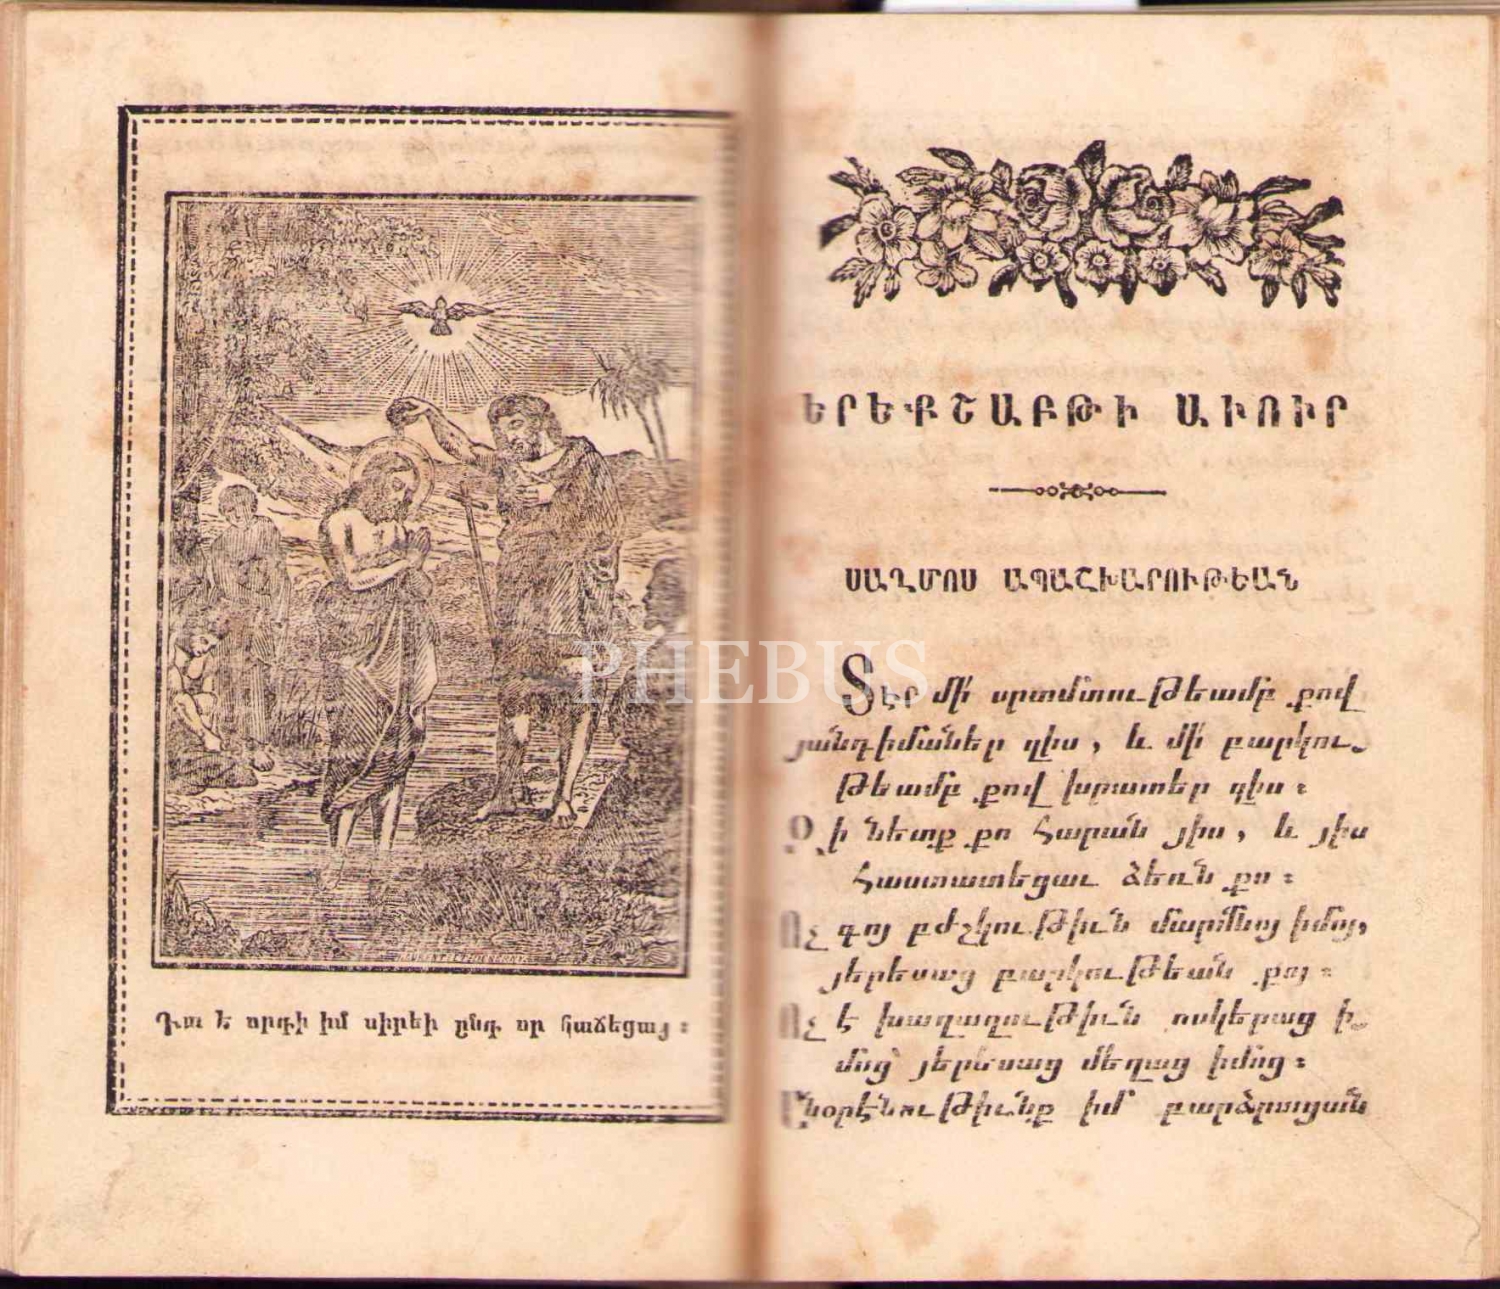 Դա է որդի իմ սիրելի ընդ որ հաճեցայ ։
ԵՐԵՔՇԱԲԹԻ ԱՒՈՒՐ
ՍԱՂՄՈՍ ԱՊԱՇԽԱՐՈՒԹԵԱՆ
Տէր մի՛ սրտմտութեամբ քով
յանդիմաներ զիս, և մի՛ բարկու֊
թեամբ քով խրատեր զիս ։
Զի նետք քո հարան յիս, և յիս
հաստատեցաւ ձեռն քո ։
Ոչ գոյ բժշկութիւն մարմնոյ իմոյ,
յերեսաց բարկութեան քոյ ։
Ոչ է խաղաղութիւն ոսկերաց ի֊
մոց՝ յերեսաց մեղաց իմոց ։
Անօրէնութիւնք իմ՝ բարձրացան
PHEBUS